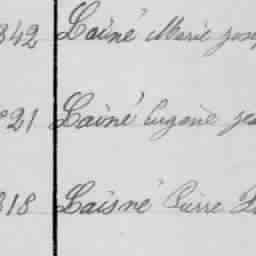 342 Lainé Marie Jose
21 Lainé Eugène Jea
318 Laisné Pierre